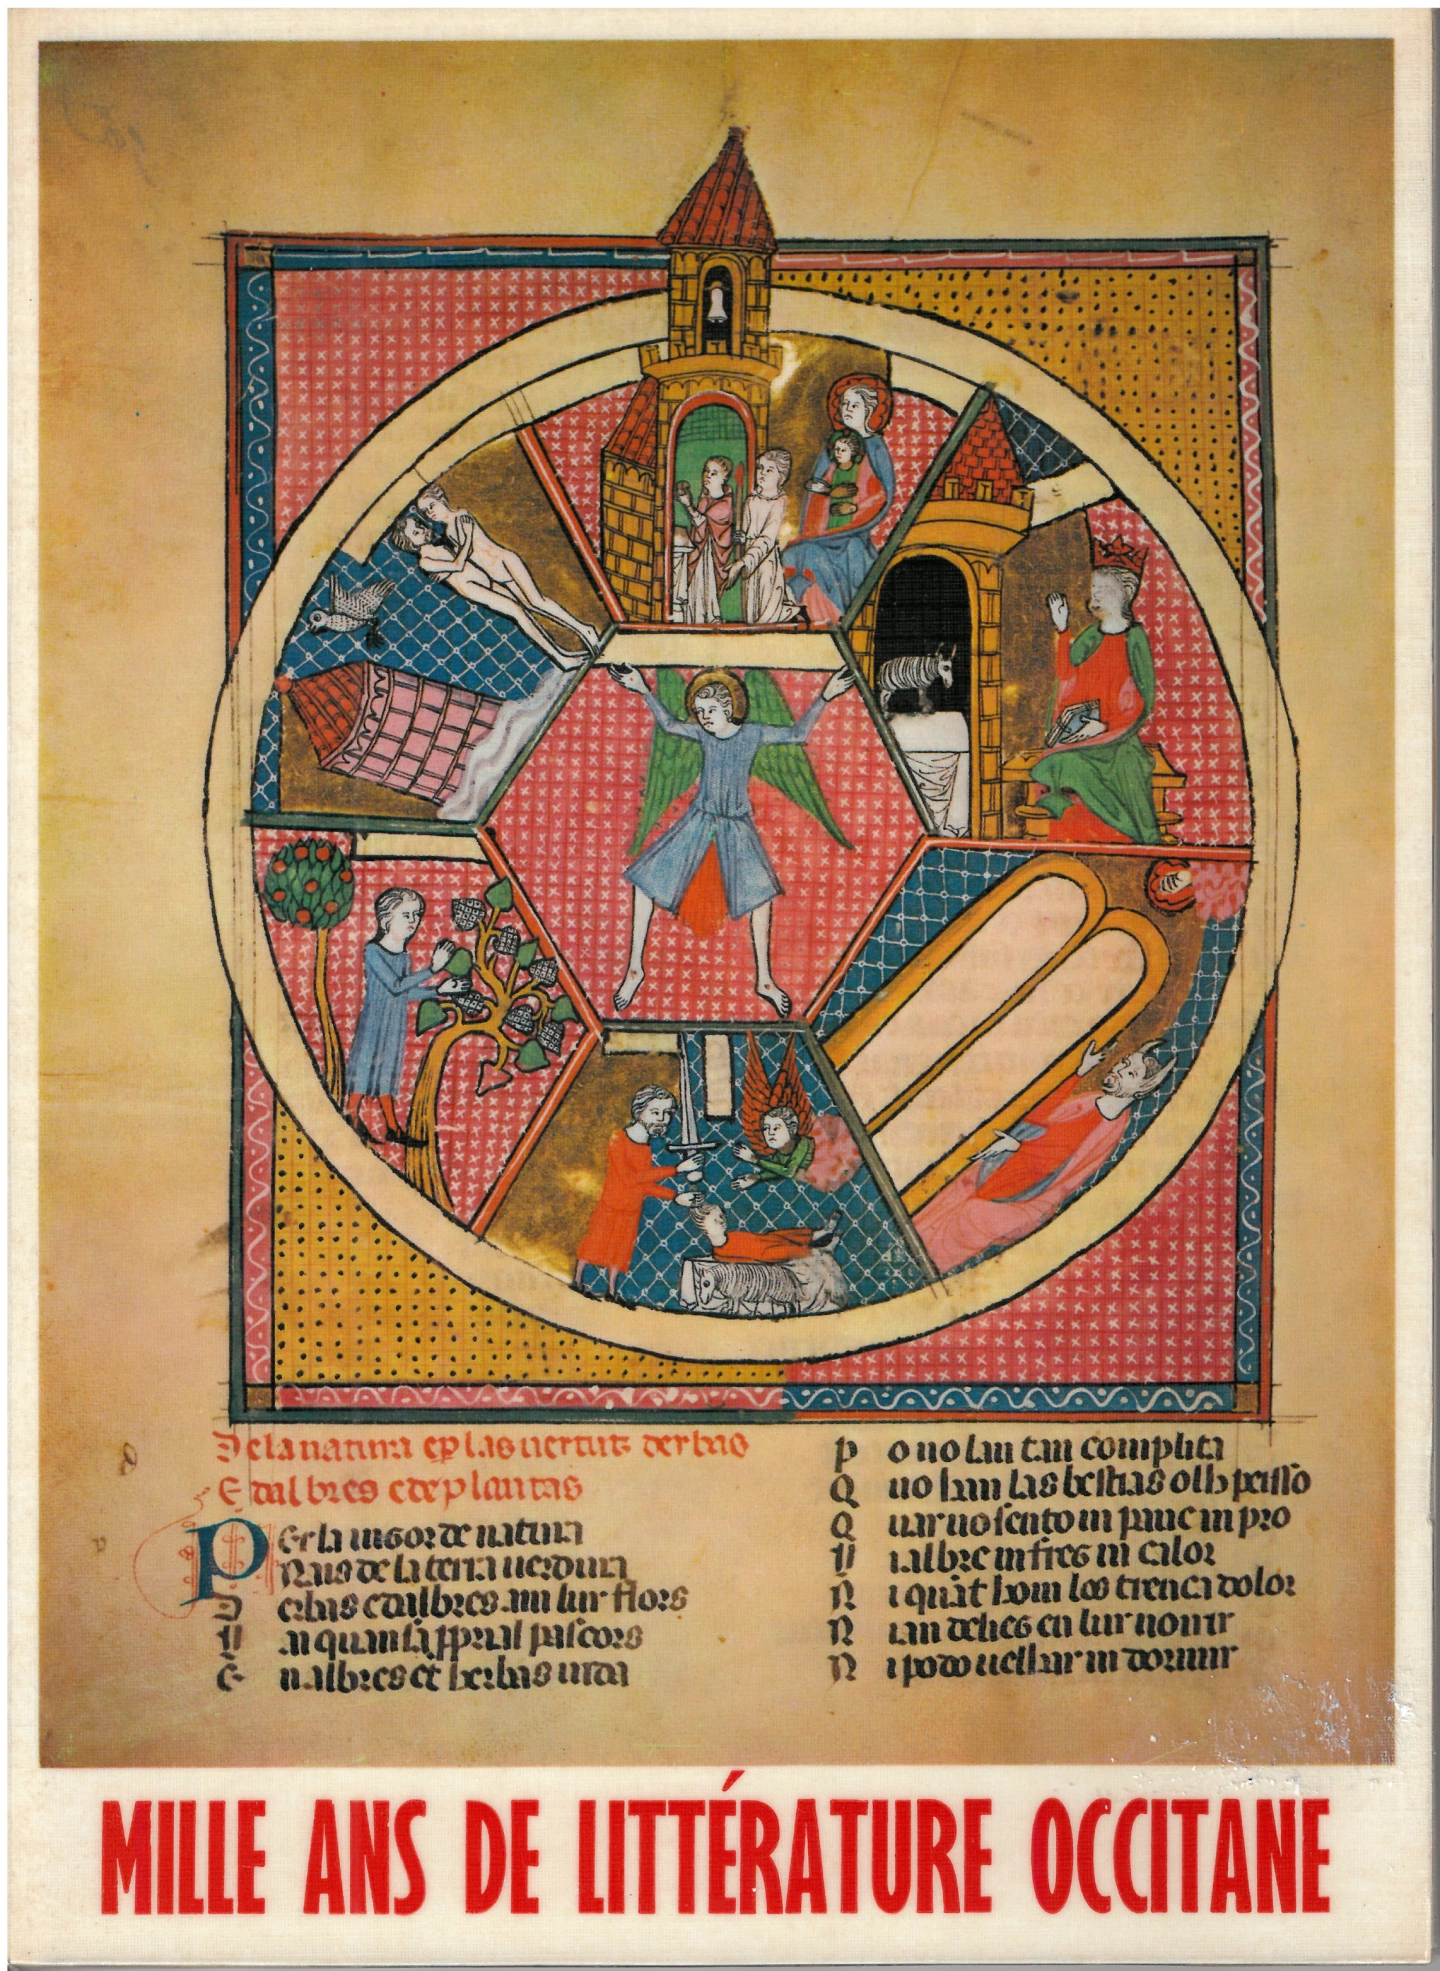 De la natura e p las uertutz derbas
E dalbres e de plantas
Per la uigor de natura
Nais de la terra uerdura
Erbas e dalbres am lur flors
En albres et herbas uida
P o no lan tan complida
Q uo han las bestias olh peisso
Q uar no sento in pauc in pro
N i albre in fregz in calor
N i quāt hom los trenca dolor
N i an deliegz en lur noirir
N i podo uelhar in dormir
MILLE ANS DE LITTÉRATURE OCCITANE